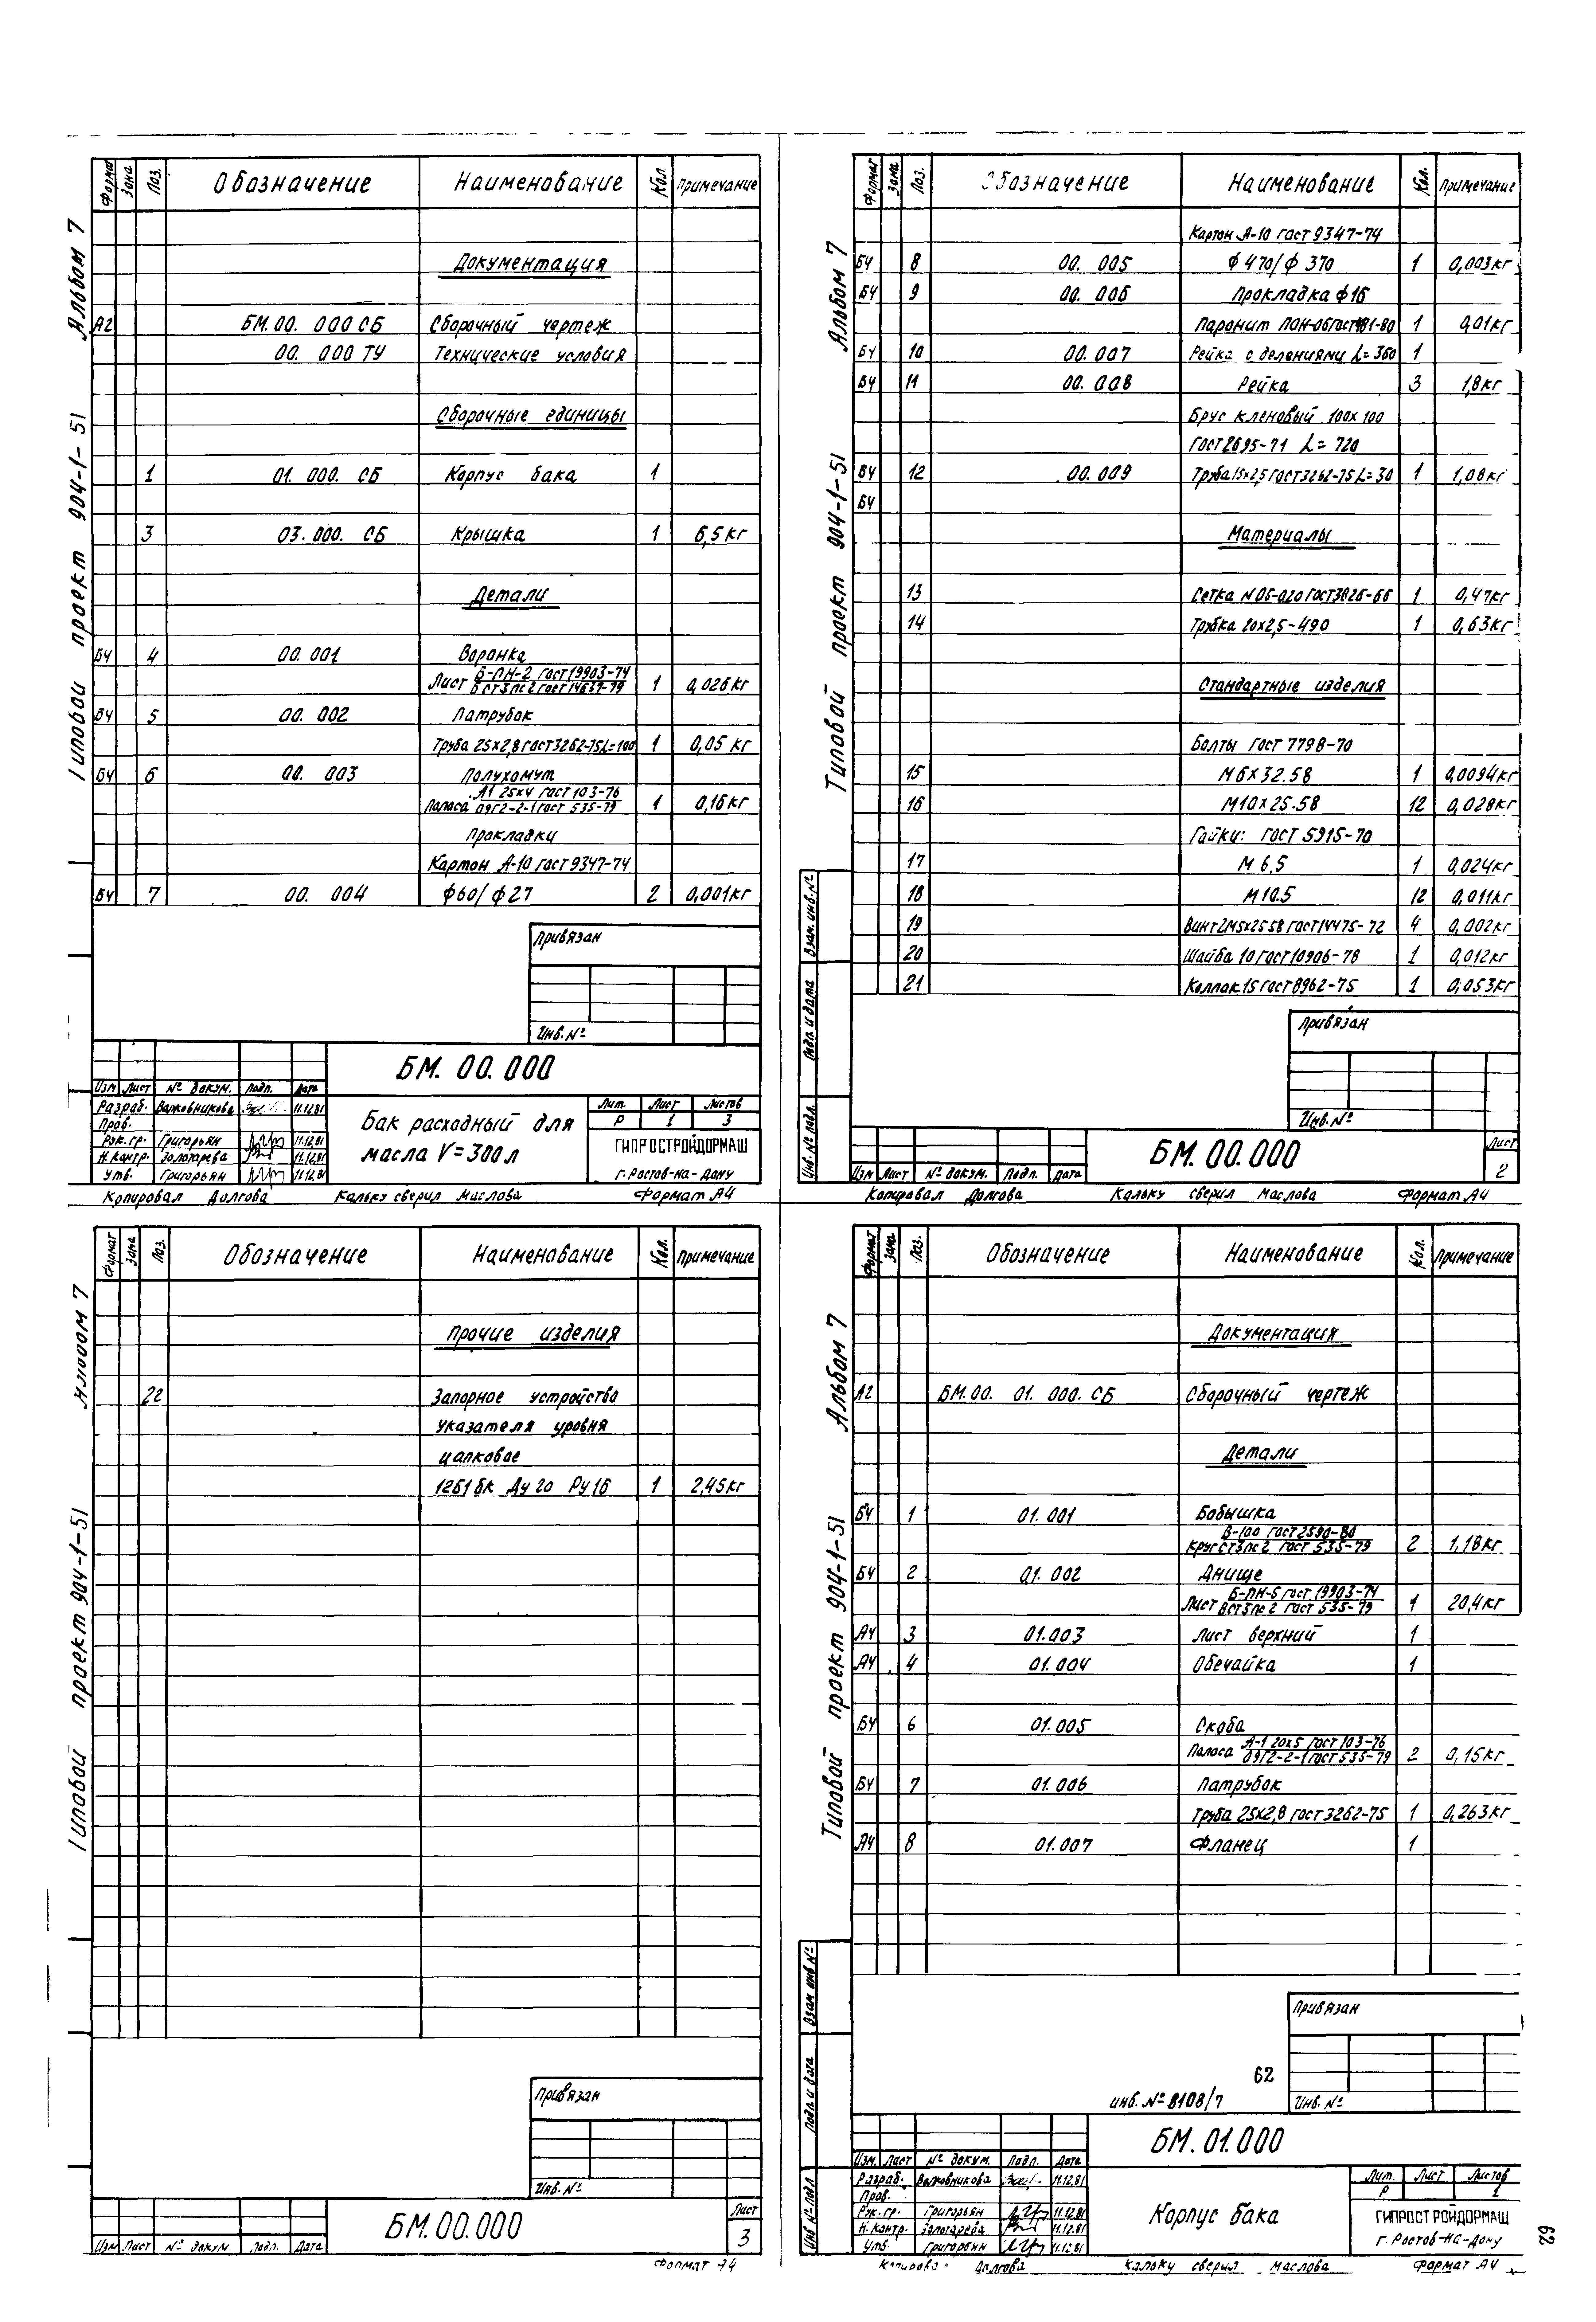 Альбом 7
Типовой проект 904-1-51
Формат Зона Поз. Обозначение Наименование Кол. Примечание
Документация
А2 БМ.00. 000 СБ Сборочный чертеж
00. 000 ТУ Технические условия
Сборочные единицы
1 01. 000. СБ Корпус бака 1
3 03. 000. СБ Крышка 1 6,5 кг
Детали
БЧ 4 00. 001 Воронка
Лист Б-ПН-2 ГОСТ 19903-74 / Б ст3пс2 ГОСТ 14637-79 1 0,026 кг
БЧ 5 00. 002 Патрубок
Труба 25х2,8 ГОСТ 3262-75 L=100 1 0,05 кг
БЧ 6 00. 003 Полухомут
Полоса А1 25х4 ГОСТ 103-76 / 09Г2-2-1 ГОСТ 535-79 1 0,16 кг
Прокладки
Картон А-10 ГОСТ 9347-74
БЧ 7 00. 004 ф60/ф27 2 0,001 кг
Привязан
Инв. №
БМ. 00. 000
Изм Лист № докум. Подп. Дата
Разраб. Валковникова 11.12.81
Пров.
Рук. гр. Григорьян 11.12.81
Н. контр. Золотарева 11.12.81
Утв. Григорьян 11.12.81
Бак расходный для
масла V=300л
Лит. Лист Листов
Р 1 3
ГИПРОСТРОЙДОРМАШ
г. Ростов-на-Дону
Копировал Долгова Кальку сверил Маслова Формат А4
Альбом 7
Типовой проект 904-1-51
Формат Зона Поз. Обозначение Наименование Кол. Примечание
Картон А-10 ГОСТ 9347-74
БЧ 8 00. 005 ф 470/ф 370 1 0,003 кг
БЧ 9 00. 006 Прокладка ф16
Паронит ПОН-06 ГОСТ 481-80 1 0,01 кг
БЧ 10 00. 007 Рейка с делениями L=360 1
БЧ 11 00. 008 Рейка 3 1,8 кг
Брус кленовый 100х100
ГОСТ 2695-71 L=720
БЧ 12 00. 009 Труба 15х2,5 ГОСТ 3262-75 L=30 1 1,08 кг
БЧ
Материалы
13 Сетка N 05-020 ГОСТ 3826-66 1 0,47 кг
14 Трубка 20х2,5-490 1 0,63 кг
Стандартные изделия
Болты ГОСТ 7798-70
15 М6х32.58 1 0,0094 кг
16 М10х25.58 12 0,028 кг
Гайки: ГОСТ 5915-70
17 М 6,5 1 0,024 кг
18 М 10.5 12 0,011 кг
19 Винт 2М5х25 58 ГОСТ 14475-72 4 0,002 кг
20 Шайба 10 ГОСТ 10906-78 1 0,012 кг
21 Колпак 15 ГОСТ 8962-75 1 0,053 кг
Взам. инв. №
Подп. и дата
Инв. № подл.
Привязан
Инв. №
Изм Лист № докум. Подп. Дата
БМ. 00. 000
Лист
2
Копировал Долгова Кальку сверил Маслова Формат А4
Альбом 7
Типовой проект 904-1-51
Формат Зона Поз. Обозначение Наименование Кол. Примечание
Прочие изделия
22 Запорное устройство
указателя уровня
цапковое
12б1бк Ду 20 Ру 16 1 2,45 кг
Привязан
Инв. №
Изм Лист № докум. Подп. Дата
БМ. 00. 000
Лист
3
Формат А4
Альбом 7
Типовой проект 904-1-51
Формат Зона Поз. Обозначение Наименование Кол. Примечание
Документация
А2 БМ.00. 01. 000. СБ Сборочный чертеж
Детали
БЧ 1 01. 001 Бобышка
Круг В-100 ГОСТ 2590-80 / Ст3пс2 ГОСТ 535-79 2 1,18 кг
БЧ 2 01. 002 Днище
Лист Б-ПН-5 ГОСТ 19903-74 / Вст3пс2 ГОСТ 535-79 1 20,4 кг
А4 3 01.003 Лист верхний 1
А4 4 01.004 Обечайка 1
БЧ 6 01.005 Скоба
Полоса А-1 20х5 ГОСТ 103-76 / 09Г2-2-1 ГОСТ 535-79 2 0,15 кг
БЧ 7 01.006 Патрубок
Труба 25х2,8 ГОСТ 3262-75 1 0,263 кг
А4 8 01.007 Фланец 1
Взам инв №
Подп. и дата
Инв № подл
Привязан
62
инв. № 8108/7
Инв. №
БМ. 01.000
Изм. Лист № докум. Подп. Дата
Разраб. Валковникова 11.12.81
Пров.
Рук. гр. Григорьян 11.12.81
Н. контр. Золотарева 11.12.81
Утв. Григорьян 11.12.81
Корпус бака
Лит. Лист Листов
Р 1
ГИПРОСТРОЙДОРМАШ
г. Ростов-на-Дону
Копировал Долгова Кальку сверил Маслова Формат А4
62